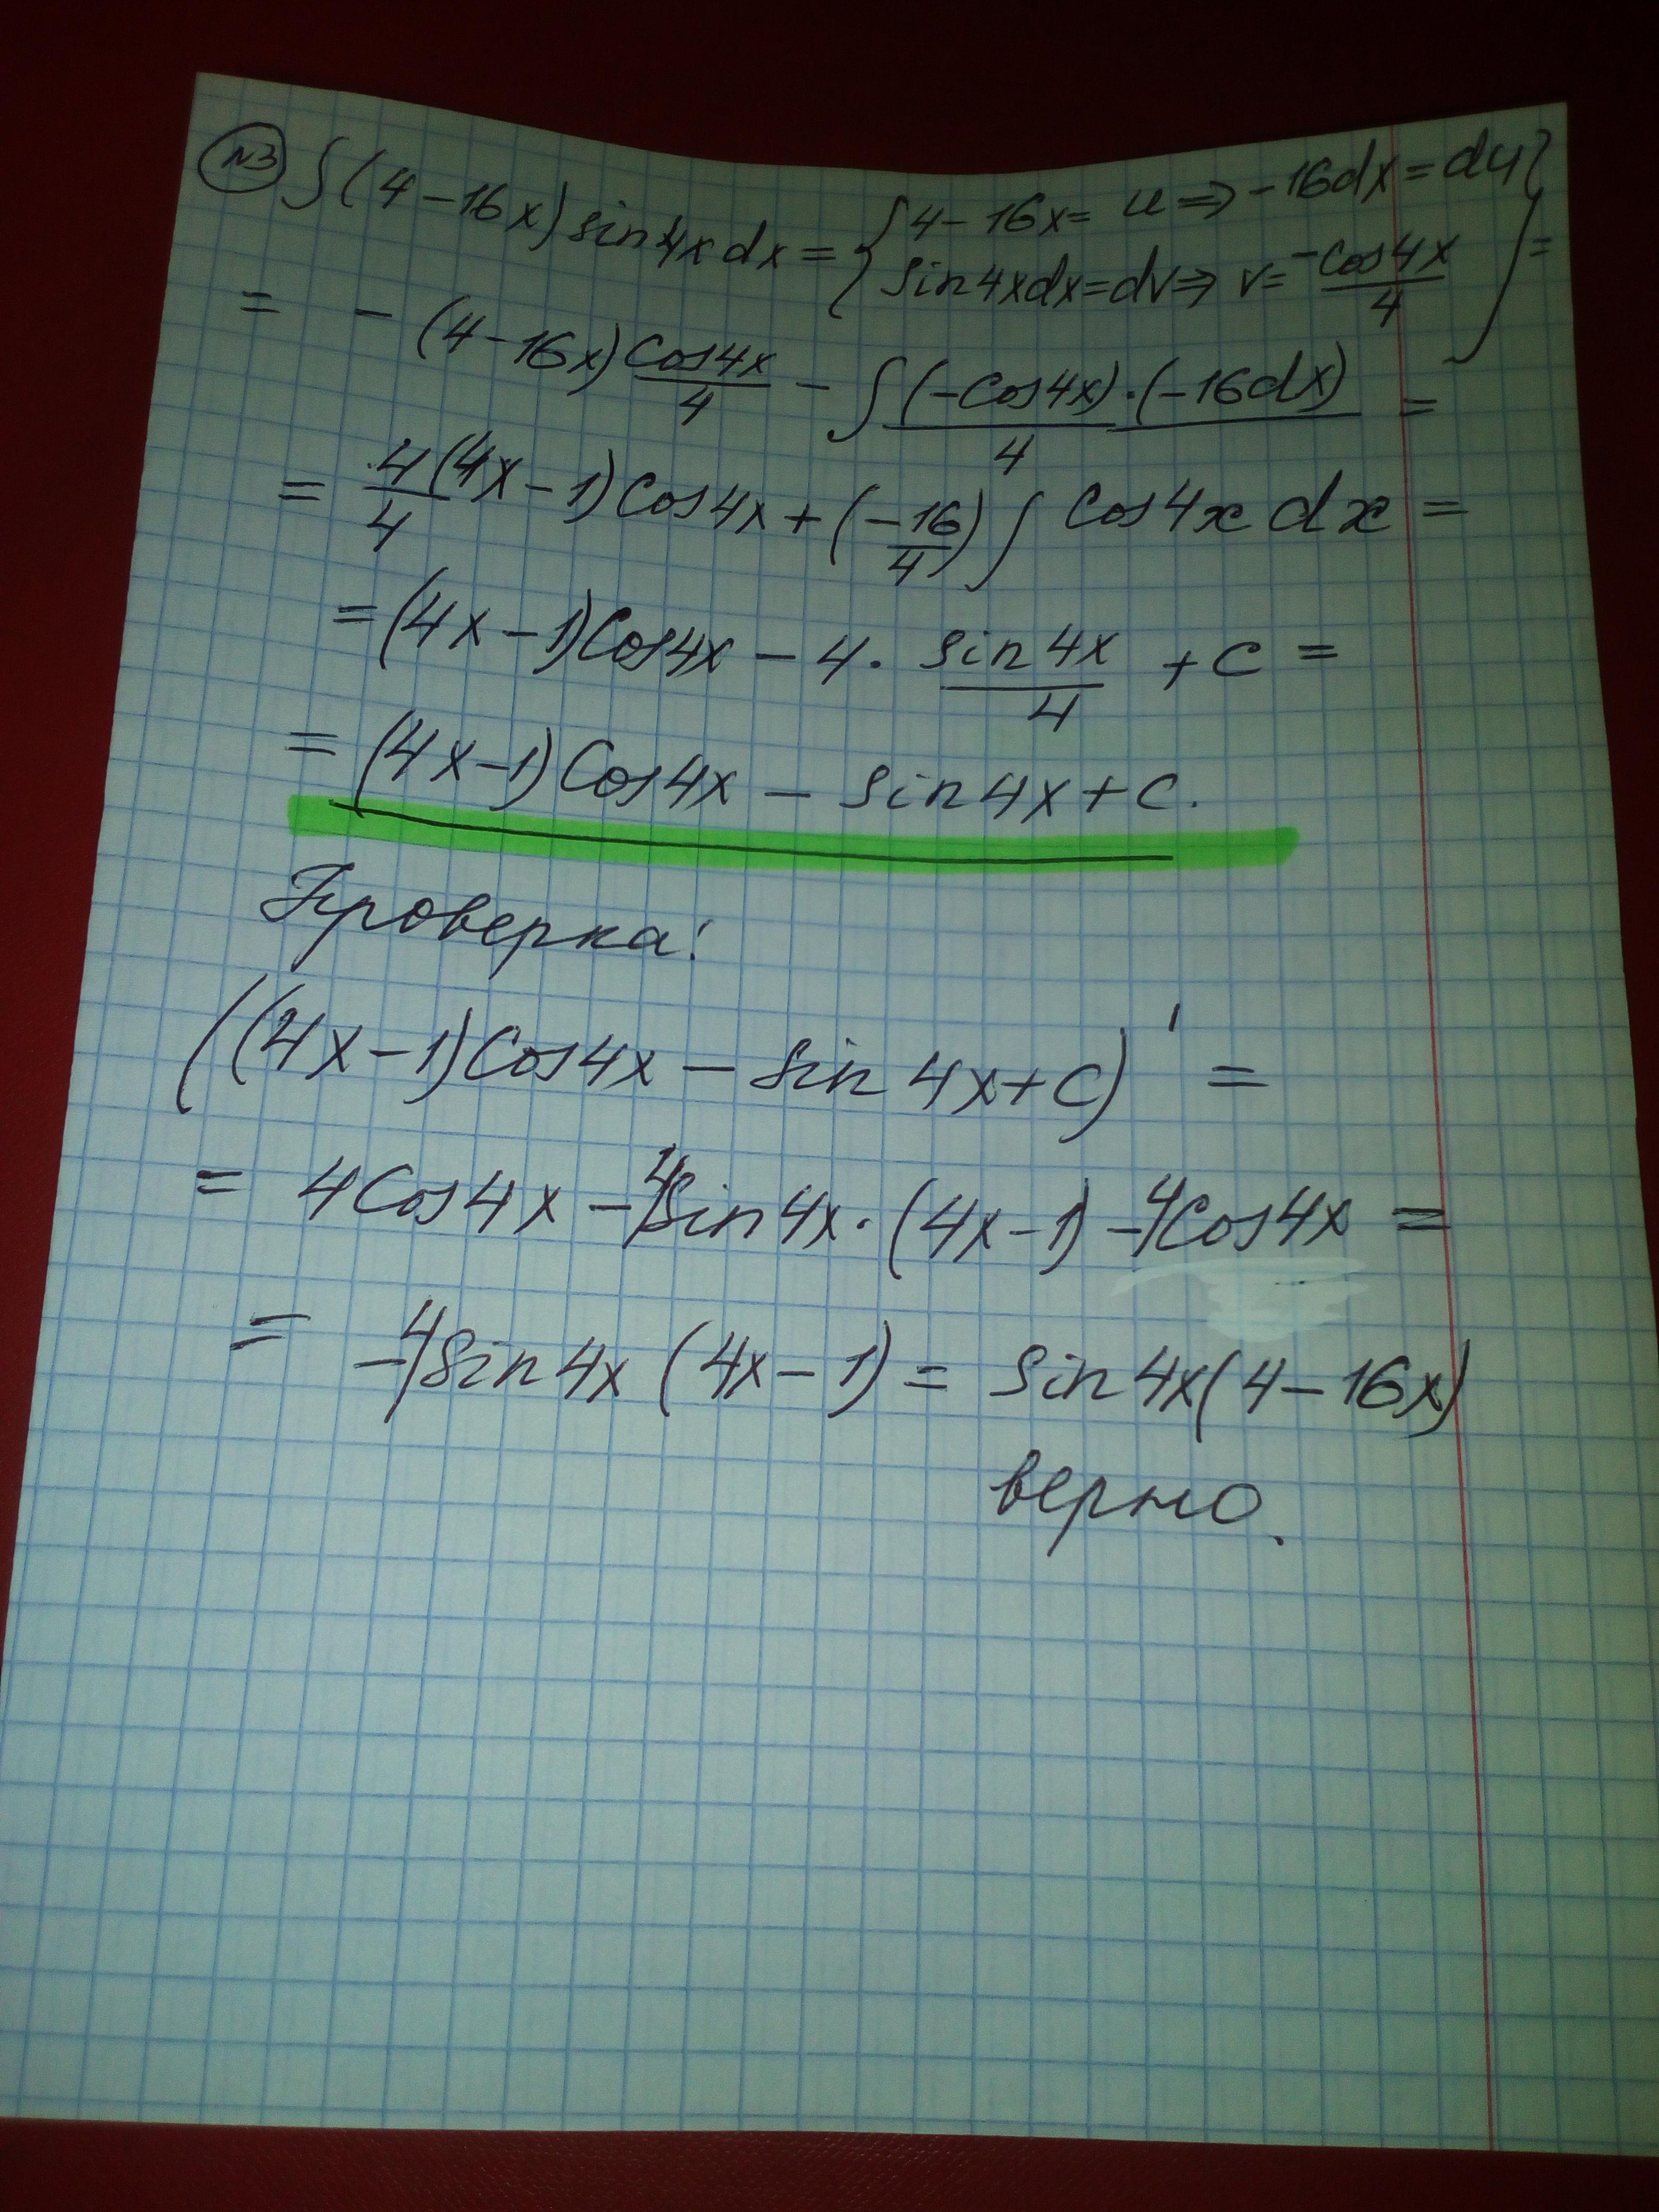 N3 ∫(4-16x)sin4xdx = {4-16x = u ⇒ -16dx = du
sin4xdx = dv ⇒ v = -cos4x/4} =
= -(4-16x)cos4x/4 - ∫(-cos4x)·(-16dx)/4 =
= 4/4(4x-1)cos4x + (-16/4)∫cos4xdx =
= (4x-1)cos4x - 4·sin4x/4 + c =
= (4x-1)cos4x - sin4x + c.
Проверка:
((4x-1)cos4x - sin4x + c)' =
= 4cos4x - 4sin4x·(4x-1) - 4cos4x =
= -4sin4x(4x-1) = sin4x(4-16x)
верно.